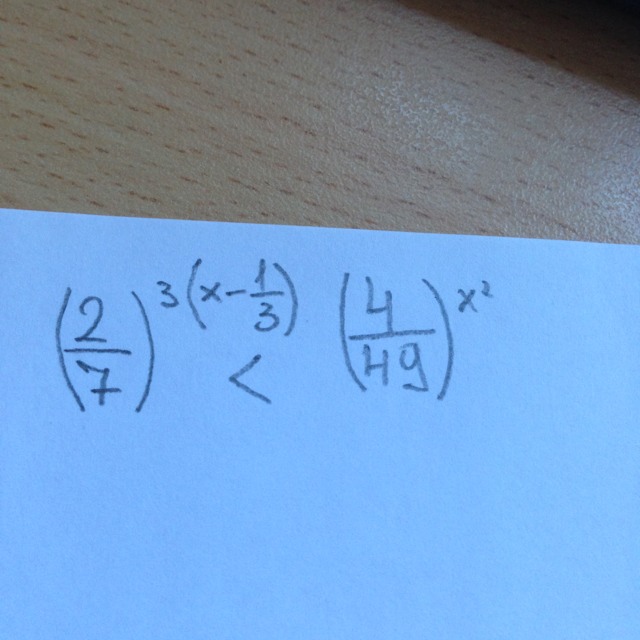 (2/7)^3(x-1/3) < (4/49)^x²